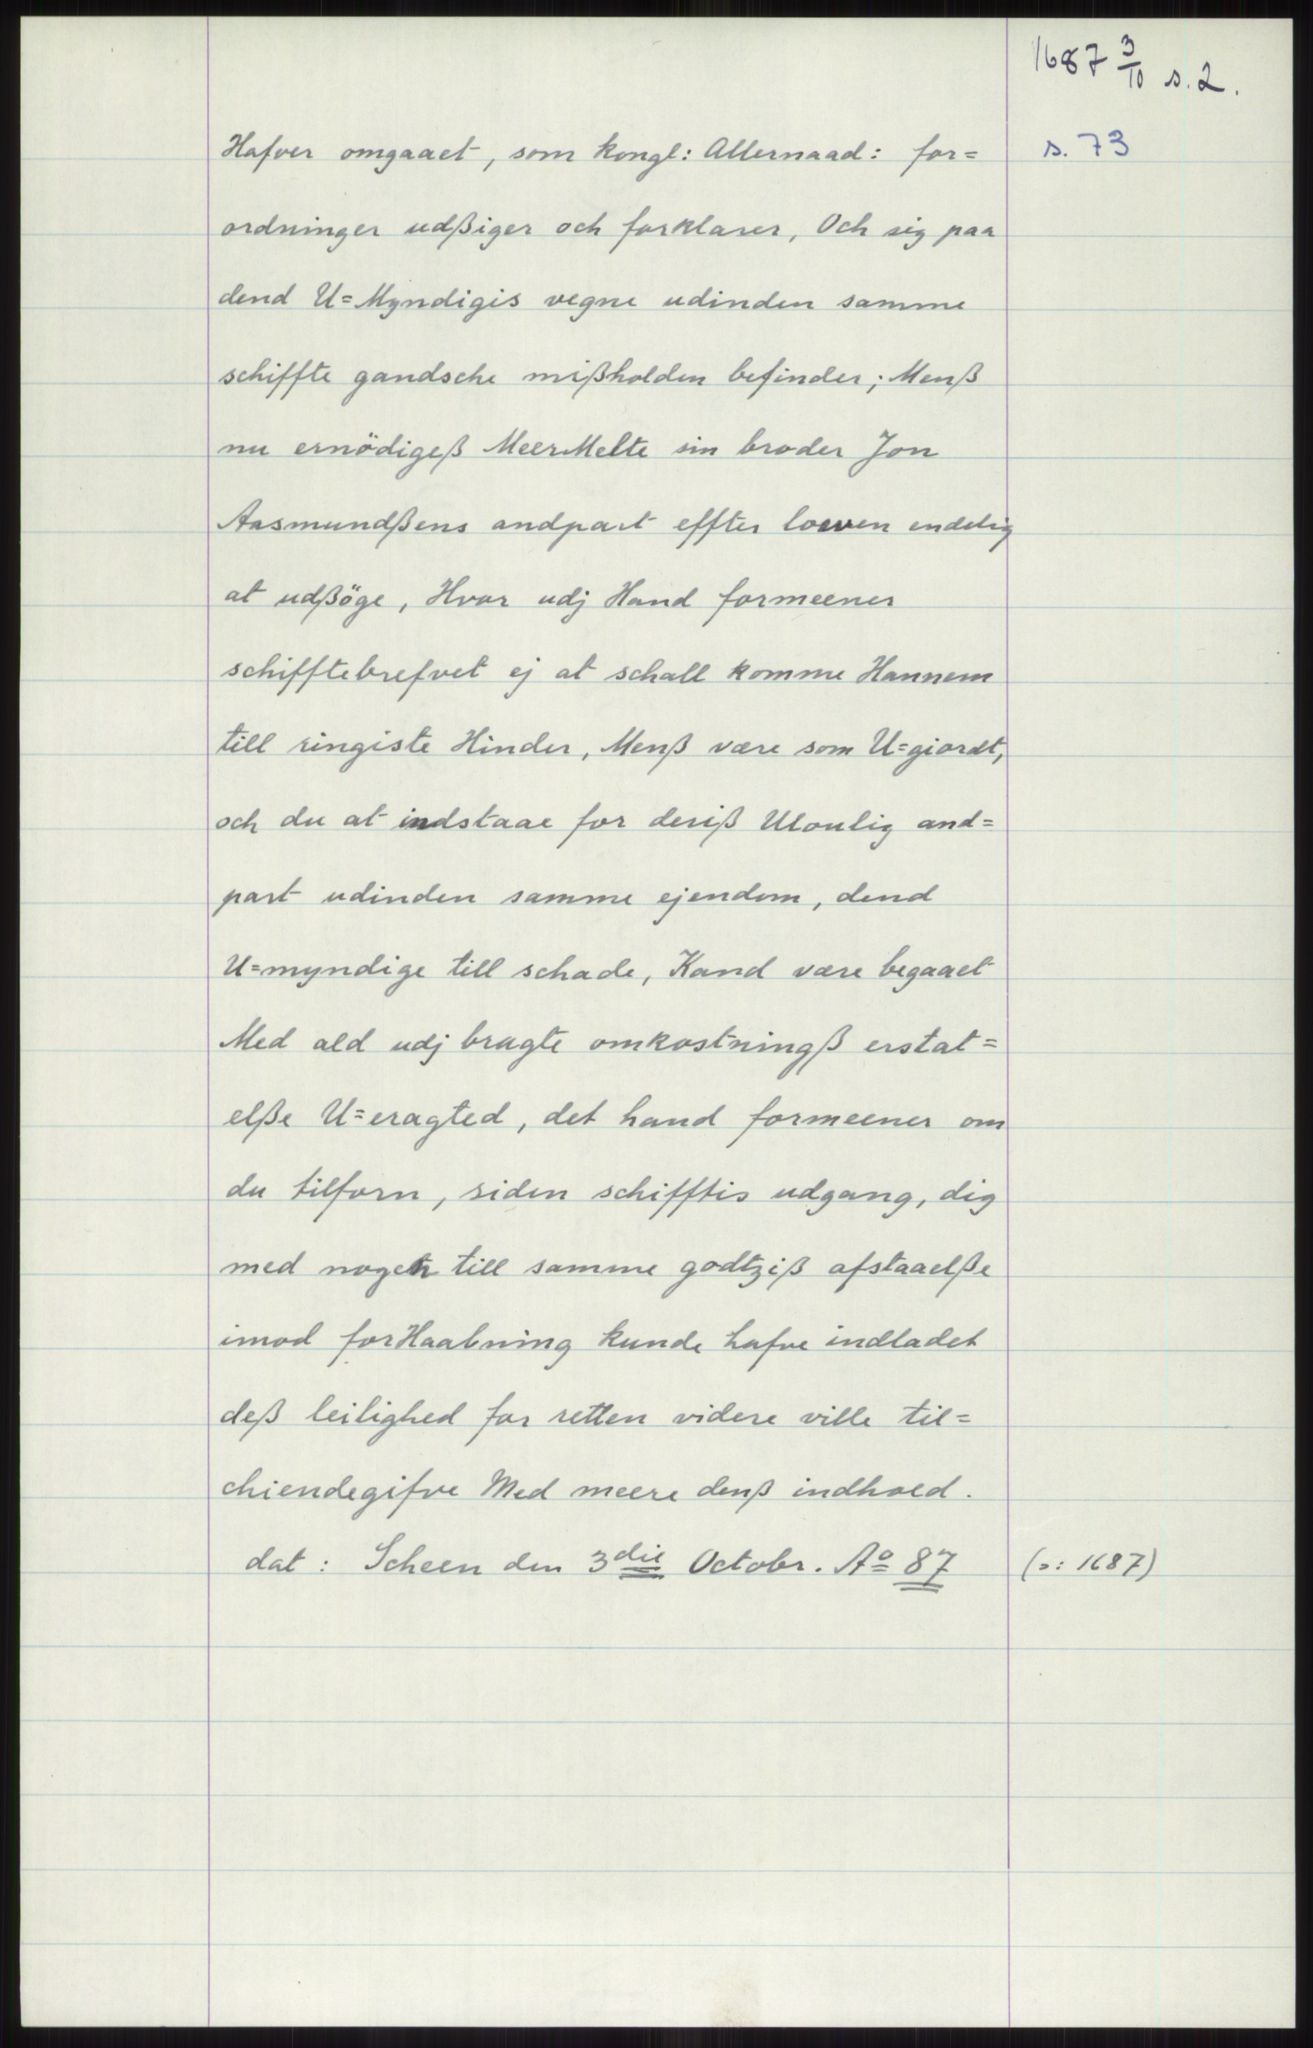 1687 3/10 s. 2.
Hafver omgaaet, som kongl: Allernaad: for= s. 73
ordninger udßiger och forklarer, Och sig paa
dend U=Myndigis vegne udinden samme
schiffte gandsche mißholden befinder; Menß
nu ernödigeß MeerMelte sin broder Jon
Aasmundßens andpart effter lowen endelig
at udßöge, Hvor udj Hand formeener
schifftebrefvet ej at schall komme Hannem
till ringiste Hinder, Menß være som U=giordt,
och du at indstaae for deriß Uloulig and=
part udinden samme ejendom, dend
U=myndige till schade, Kand være begaaet
Med ald udj bragte omkostningß erstat=
elße U=eragted, det hand formeener om
du tilforn, siden schifftis udgang, dig
med nogen till samme godtziß afstaaelße
imod forHaabning kunde hafve indladet
deß leilighed for retten videre ville til=
chiendegifve Med meere denß indhold.
dat: Scheen den 3die Octobr. Ao 87 (ɔ: 1687)